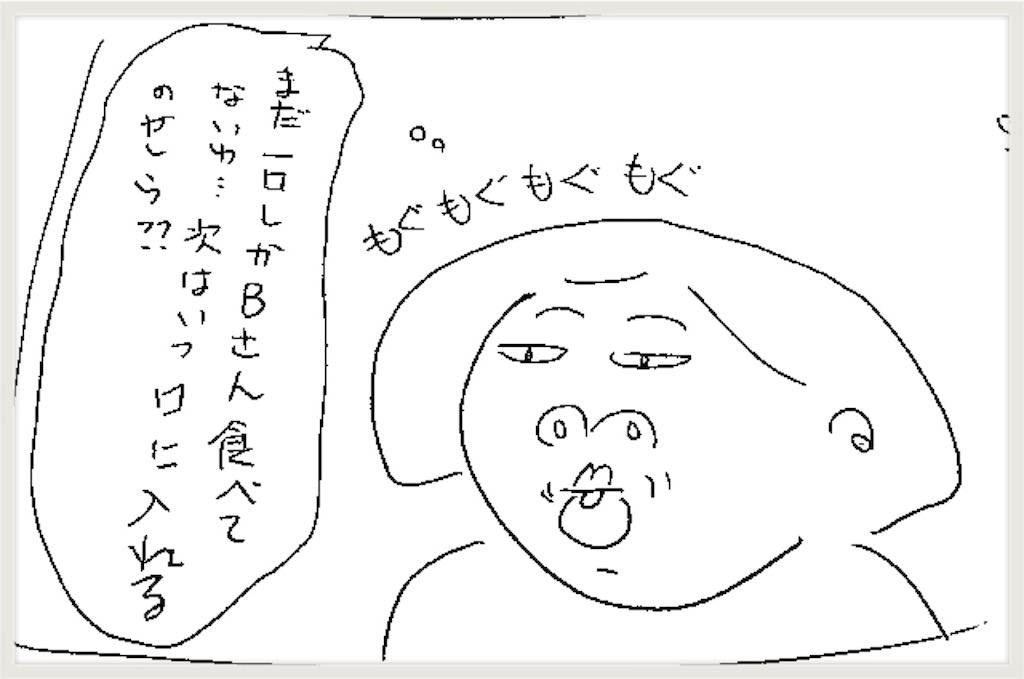 まだ一口しかBさん食べて
ないわ…次はいつ口に入れる
のかしら??
もぐもぐもぐもぐ